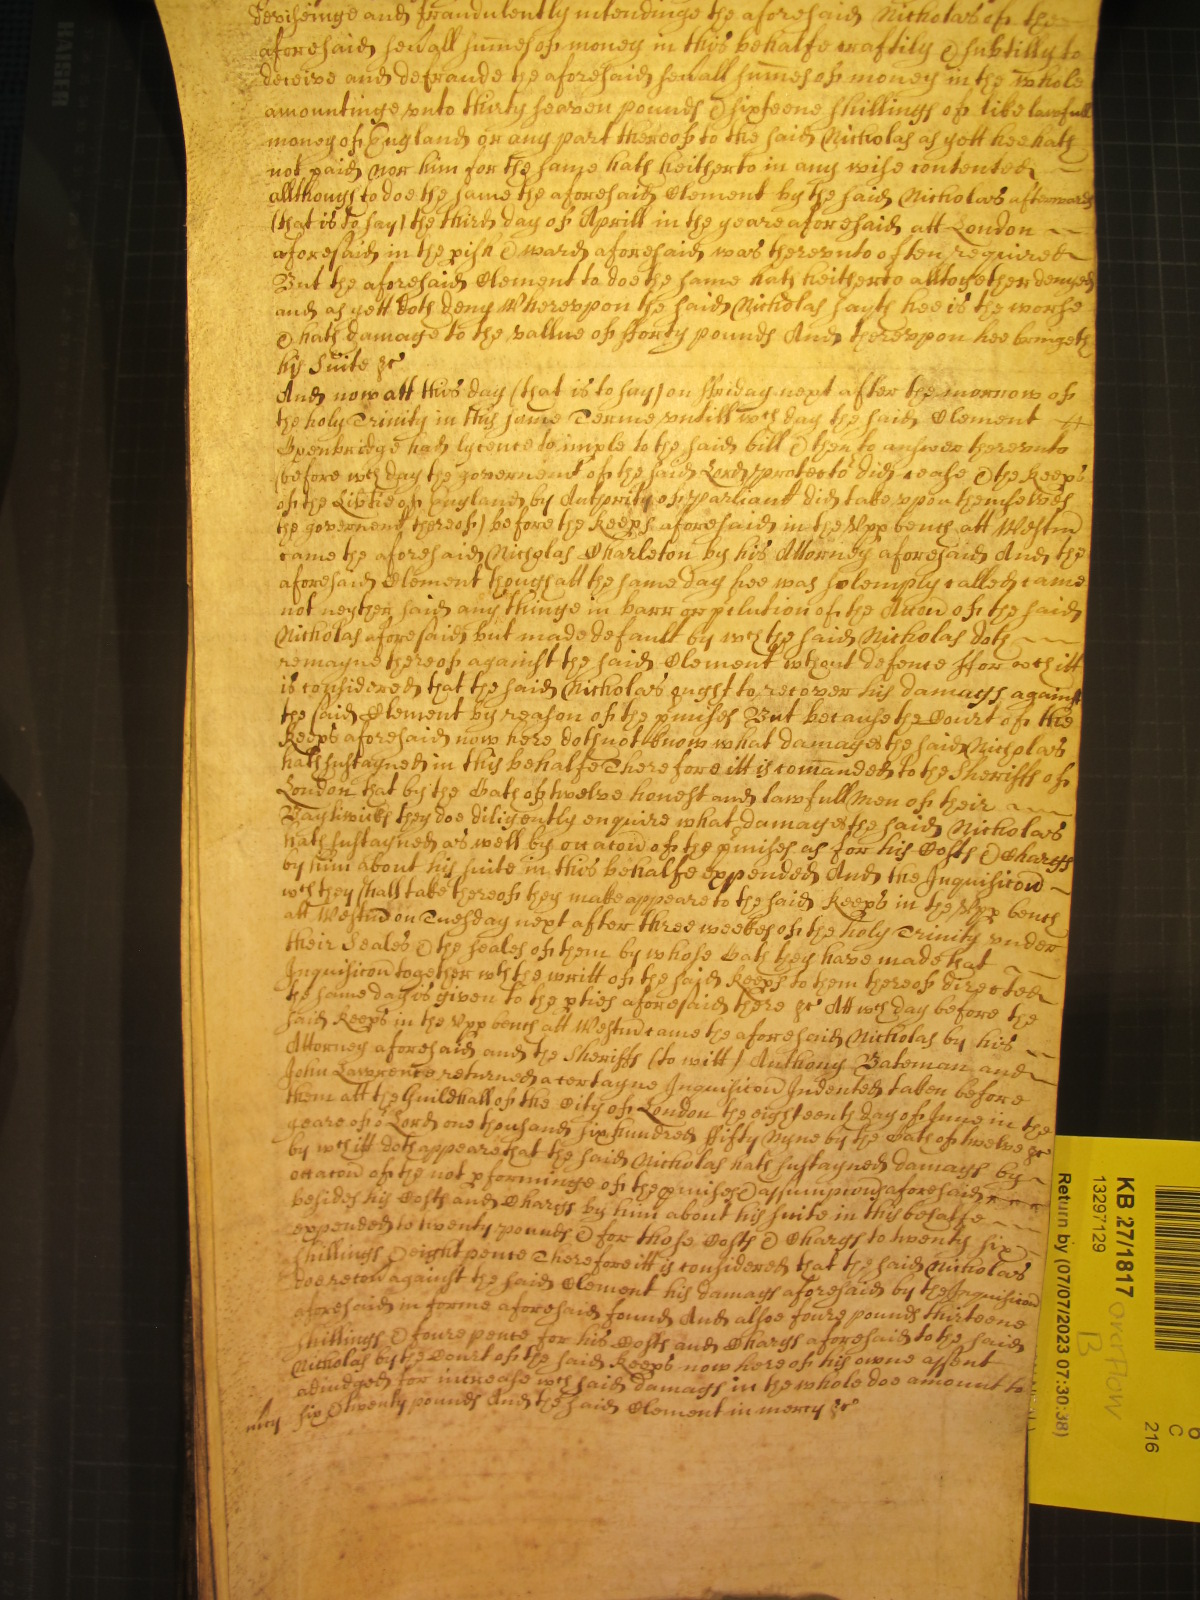 deviseinge and fraudulently intendinge the aforesaid Nicholas of the
aforesaid sevall sumes of money in this behalfe craftily & subtilly to
deceive and defraude the aforesaid sevall sumes of money in the whole
amountinge vnto thirty seaven pounds & sixteene shillings of like lawfull
money of England or any part thereof to the said Nicholas as yett hee hath
not paid nor him for the same hath heitherto in any wise contented
allthough to doe the same the aforesaid Clement by the said Nicholas afterwards
(that is to say) the third day of Aprill in the yeare aforesaid att London
aforesaid in the pish & ward aforesaid was therevnto often required
But the aforesaid Clement to doe the same hath heitherto alltogether denyed
and as yett doth deny Wherevpon the said Nicholas sayth hee is the worse
& hath damage to the vallue of fforty pounds And therevpon hee bringeth
his Suite &c
And now att this day (that is to say) on ffriday next after the morrow of
the holy Trinity in this same Terme vntill wch day the said Clement
Openbridge had lycence to imple to the said bill & then to answer therevnto
(before wch day the governemt of the said Lord protector did cease & the Keeps
of the Libtie of England by Authority of parliamt did take vpon themselves
the governemt thereof) before the Keeps aforesaid in the Vpp bench att Westm
came the aforesaid Nicholas Charleton by his Attorney aforesaid And the
aforesaid Clement though att the same day hee was solemply called came
not neyther said any thinge in barr or pclution of the Accon of the said
Nicholas aforesaid but made default by wch the said Nicholas doth
remayne thereof against the said Clement wthout defence ffor wch itt
is considered that the said Nicholas ought to recover his damags against
the said Clement by reason of the pmises But because the Court of the
Keeps aforesaid now here doth not know what damages the said Nicholas
hath sustayned in this behalfe Therefore itt is comanded to the Sheriffs of
London that by the Oath of twelve honest and lawfull Men of their
Bayliwicks they doe diligently enquire what damages the said Nicholas
hath sustayned as well by occacon of the pmises as for his Costs & Chargs
by him about his suite in this behalfe expended And the Inquisicon
wch they shall take thereof they make appeare to the said Keeps in the Vpp bench
att Westm on Tuesday next after three weekes of the holy Trinity vnder
their Seales & the seales of them by whose Oath they have made that
Inquisicon together wth the writt of the said Keeps to them thereof directed
the same day is given to the pties aforesaid there &c Att wch day before the
said Keeps in the Vpp bench att Westm came the aforesaid Nicholas by his
Attorney aforesaid and the Sheriffs (to witt) Anthony Bateman and
John Lawrence returned a certayne Inquisicon Indented taken before
them att the Guildhall of the City of London the eighteenth day of June in the
yeare of or Lord one thousand six hundred ffifty Nyne by the Oath of twelve &c
by wch itt doth appeare that the said Nicholas hath sustayned damags by
occacon of the not pforminge of the pmises & assumpcons aforesaid
besides his Costs and Chargs by him about his suite in this behalfe
expended to twenty pounds & for those Costs & Chargs to twenty six
shillings & eight pence Therefore itt is considered that the said Nicholas
doe recov against the said Clement his damags aforesaid by the Inquisicon
aforesaid in forme aforesaid found And alsoe foure pounds thirteene
shillings & foure pence for his Costs and Chargs aforesaid to the said
Nicholas by the Court of the said Keeps now here of his owne assent
adiudged for increase wch said damags in the whole doe amount to
six & twenty pounds And the said Clement in mercy &c
mcy
KB 27/1817
13297129
Return by (07/07/2023 07:30:38)
overflow
B
C
216